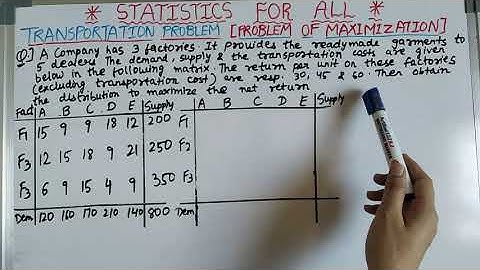 * STATISTICS FOR ALL *
TRANSPORTATION PROBLEM [PROBLEM OF MAXIMIZATION]
Q.] A Company has 3 factories. It provides the readymade garments to
5 dealers. The demand, supply & the transportation costs are given
below in the following matrix. The return per unit on these factories
(excluding transportation cost) are resp. 30, 45 & 60. Then obtain
the distribution to maximize the net return
Fact A B C D E Supply A B C D E Supply
F1 15 9 9 18 12 200 F1
F2 12 15 18 9 21 250 F2
F3 6 9 15 4 9 350 F3
Dem 120 160 170 210 140 800 Dem